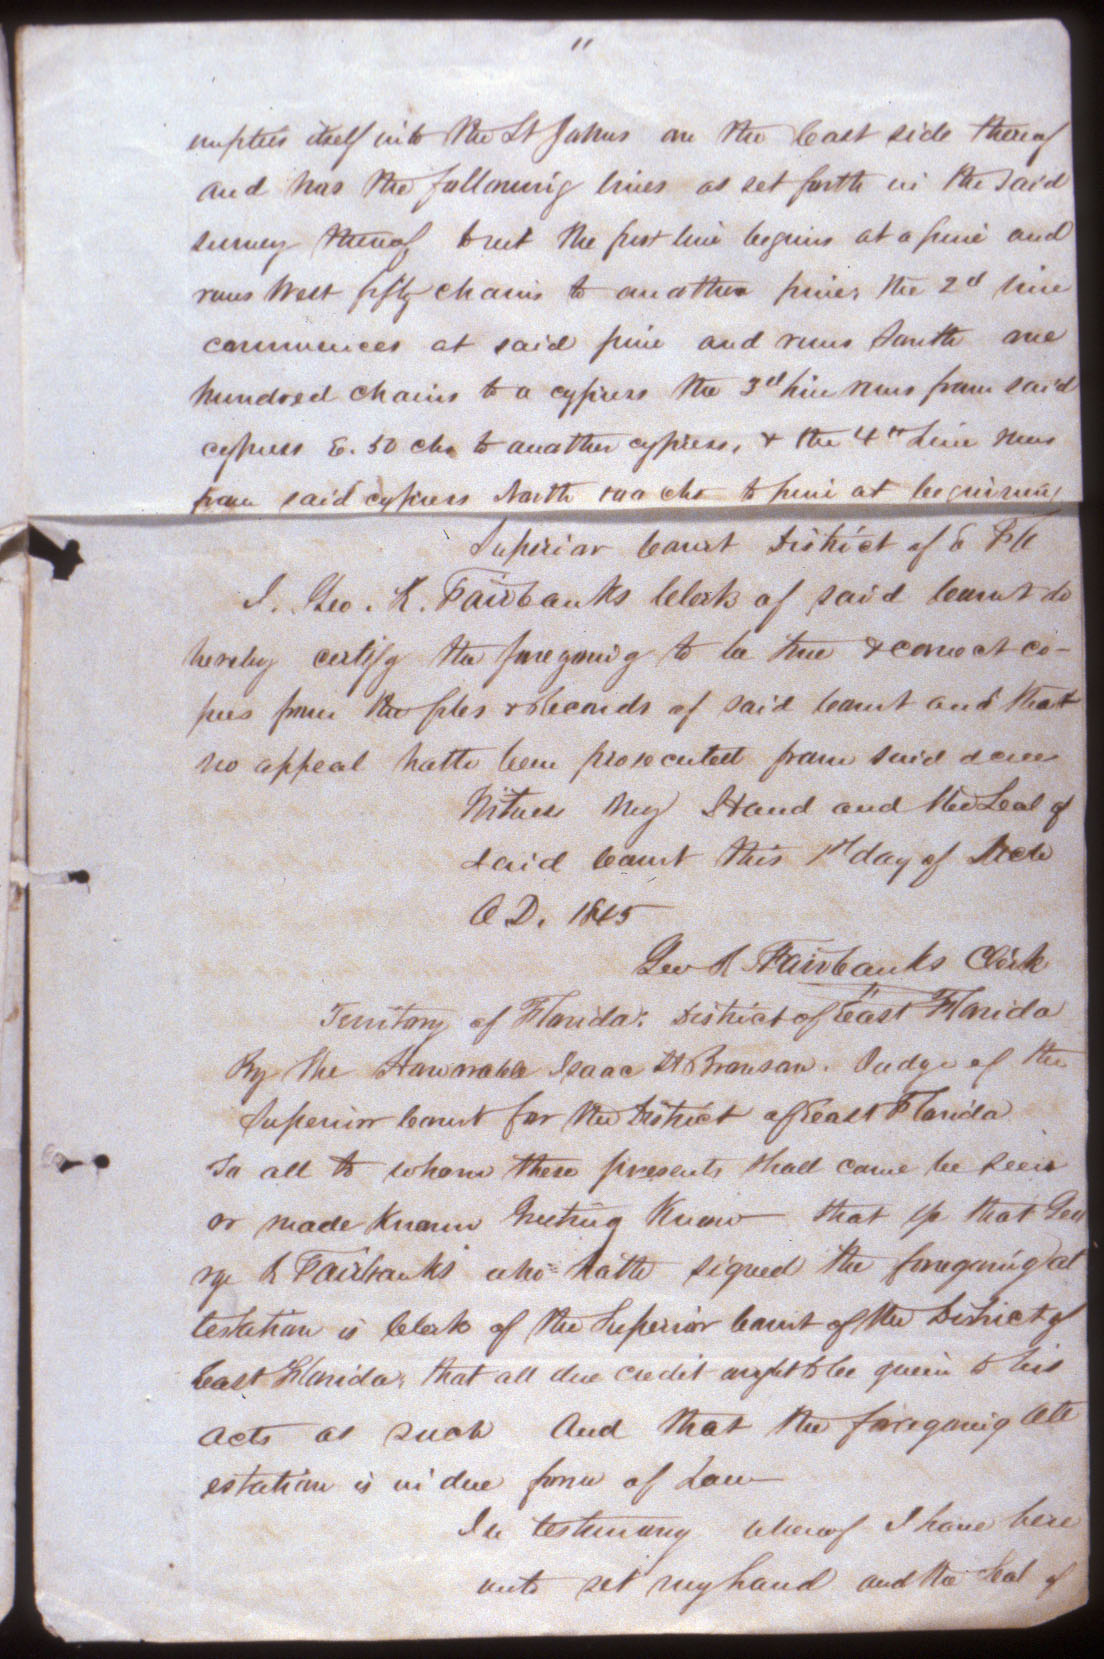 11
empties itself into the St Johns on the East side thereof
and has the following lines as set forth in the said
survey thereof to wit the first line begins at a pine and
runs West fifty chains to another pine, the 2d line
commences at said pine and runs South one
hundred chains to a cypress the 3d line runs from said
cypress E. 50 chs to another cypress, & the 4th Line runs
from said cypress North 100 chs to pine at beginning
Superior Court District of E Fla
I. Geo. R. Fairbanks Clerk of said Court do
hereby certify the foregoing to be true & correct co-
pies from the files & Records of said Court and that
no appeal hath been prosecuted from said decree
Witness my Hand and the Seal of
said Court this 1st day of
A D. 1845
Geo R Fairbanks Clerk
Territory of Florida: District of East Florida
By the Honorable Isaac H Bronson. Judge of the
Superior Court for the District of East Florida
To all to whom these presents shall come be seen
or made Known Greeting Know that that Geo
rge R Fairbanks who hath signed the foregoing at
testation is Clerk of the Superior Court of the District of
East Florida, that all due credit ought to be given to his
acts as such And that the foregoing att
estation is in due form of Law
In testimony whereof I have here
unto set my hand and the Seal of